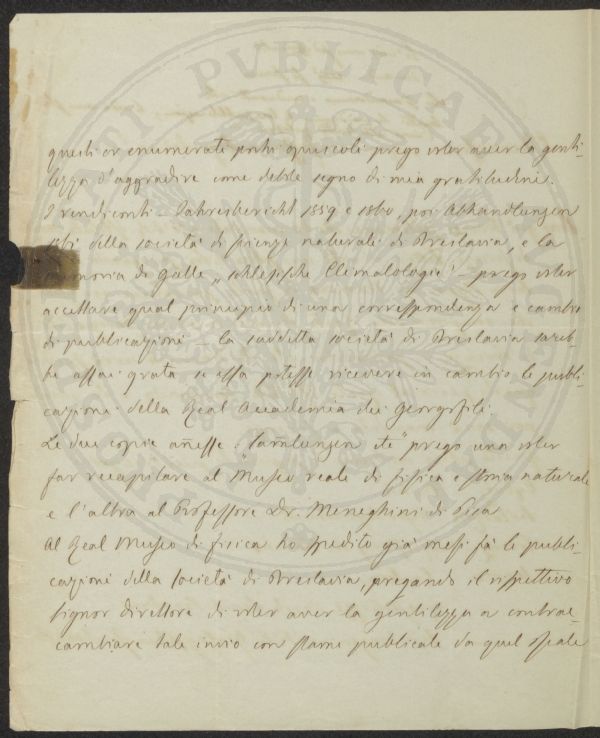 questi or enumerati pochi opuscoli prego voler aver la genti-
lezza d'aggradire come debole segno di mia gratitudine.
I rendiconti – Jahresbericht 1859 e 1860, poi Abhandlungen
1861 della società di scienze naturali di Breslavia, e la
memoria di Galle „schlesische Climatologie" – prego voler
accettare qual principio di una corrispondenza e cambio
di pubblicazioni – la suddetta società di Breslavia sareb-
be assai grata se essa potesse ricevere in cambio le publi-
cazioni della Real Accademia dei Georgofili.
Le due copie añesse: prego una voler
far recapitare al Museo reale di fisica e storia naturale
e l'altra al Professore Dr. Meneghini di Pisa
Al Real Museo di fisica ho spedito già mesi fà le publi-
cazioni della società di Breslavia, pregando il rispettivo
signor direttore di voler aver la gentilezza a contrac-
cambiare tale invio con publicate da quel